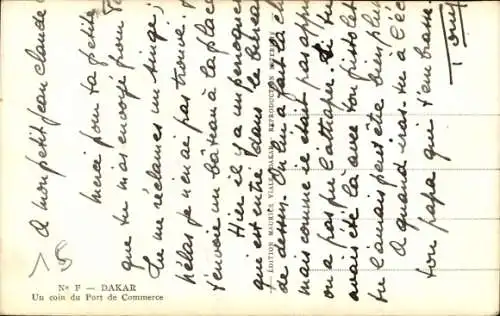 A mon petit Jean Claude
merci pour ta petite
que tu m'as envoyé pour
Tu me réclames un singe,
hélas je n'en ai pas trouvé.
t'envoie un bâteau à la place
Hier il y a un perroquet
qui est entré dans le bureau
de dessin. On lui a fait la
mais comme il était pas
on a pas pu l'attraper. Si tu
avais été là avec ton pistolet
tu l'aurais peut être
A quand iras-tu à l'éc
ton papa qui t'embrasse
EDITION MAURICE VIALE, DAKAR. REPRODUCTION
No F — DAKAR
Un coin du Port de Commerce